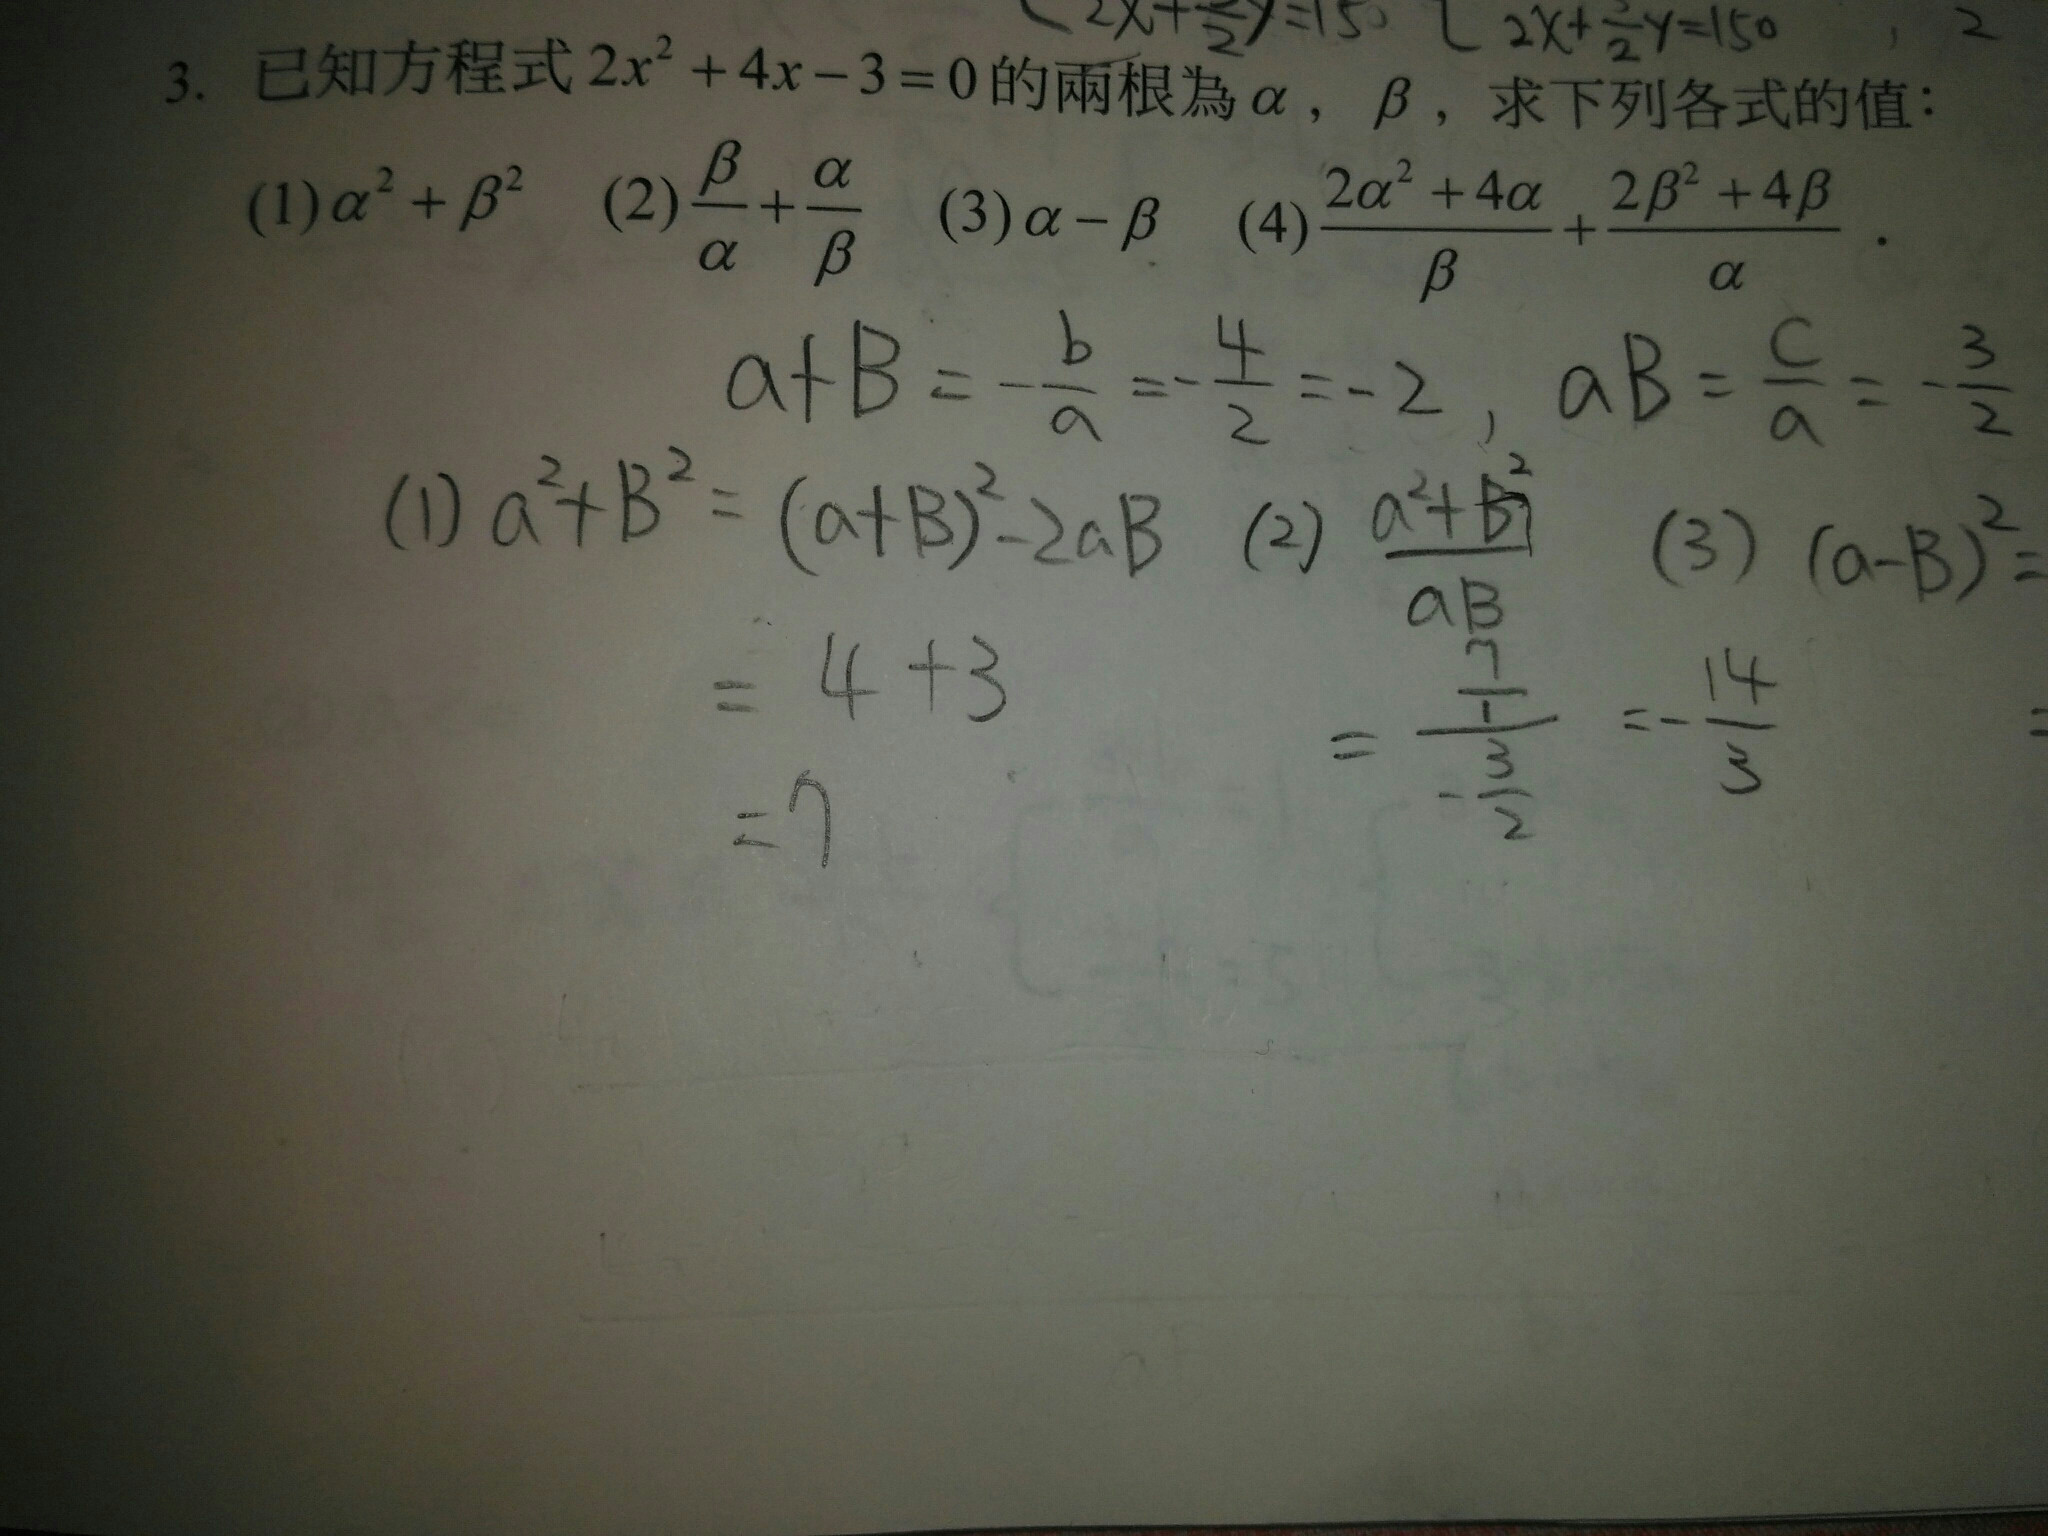 2x+3/2y=150 2x+3/2y=150 , 2
3. 已知方程式 2x²+4x-3=0 的兩根為 α, β, 求下列各式的值:
(1) α²+β² (2) β/α + α/β (3) α-β (4) (2α²+4α)/β + (2β²+4β)/α .
a+B = -b/a = -4/2 = -2, aB = c/a = -3/2
(1) a²+B² = (a+B)²-2aB (2) (a²+B²)/aB (3) (a-B)² =
= 4+3 = (7/1)/(-3/2) = -14/3 =
= 7